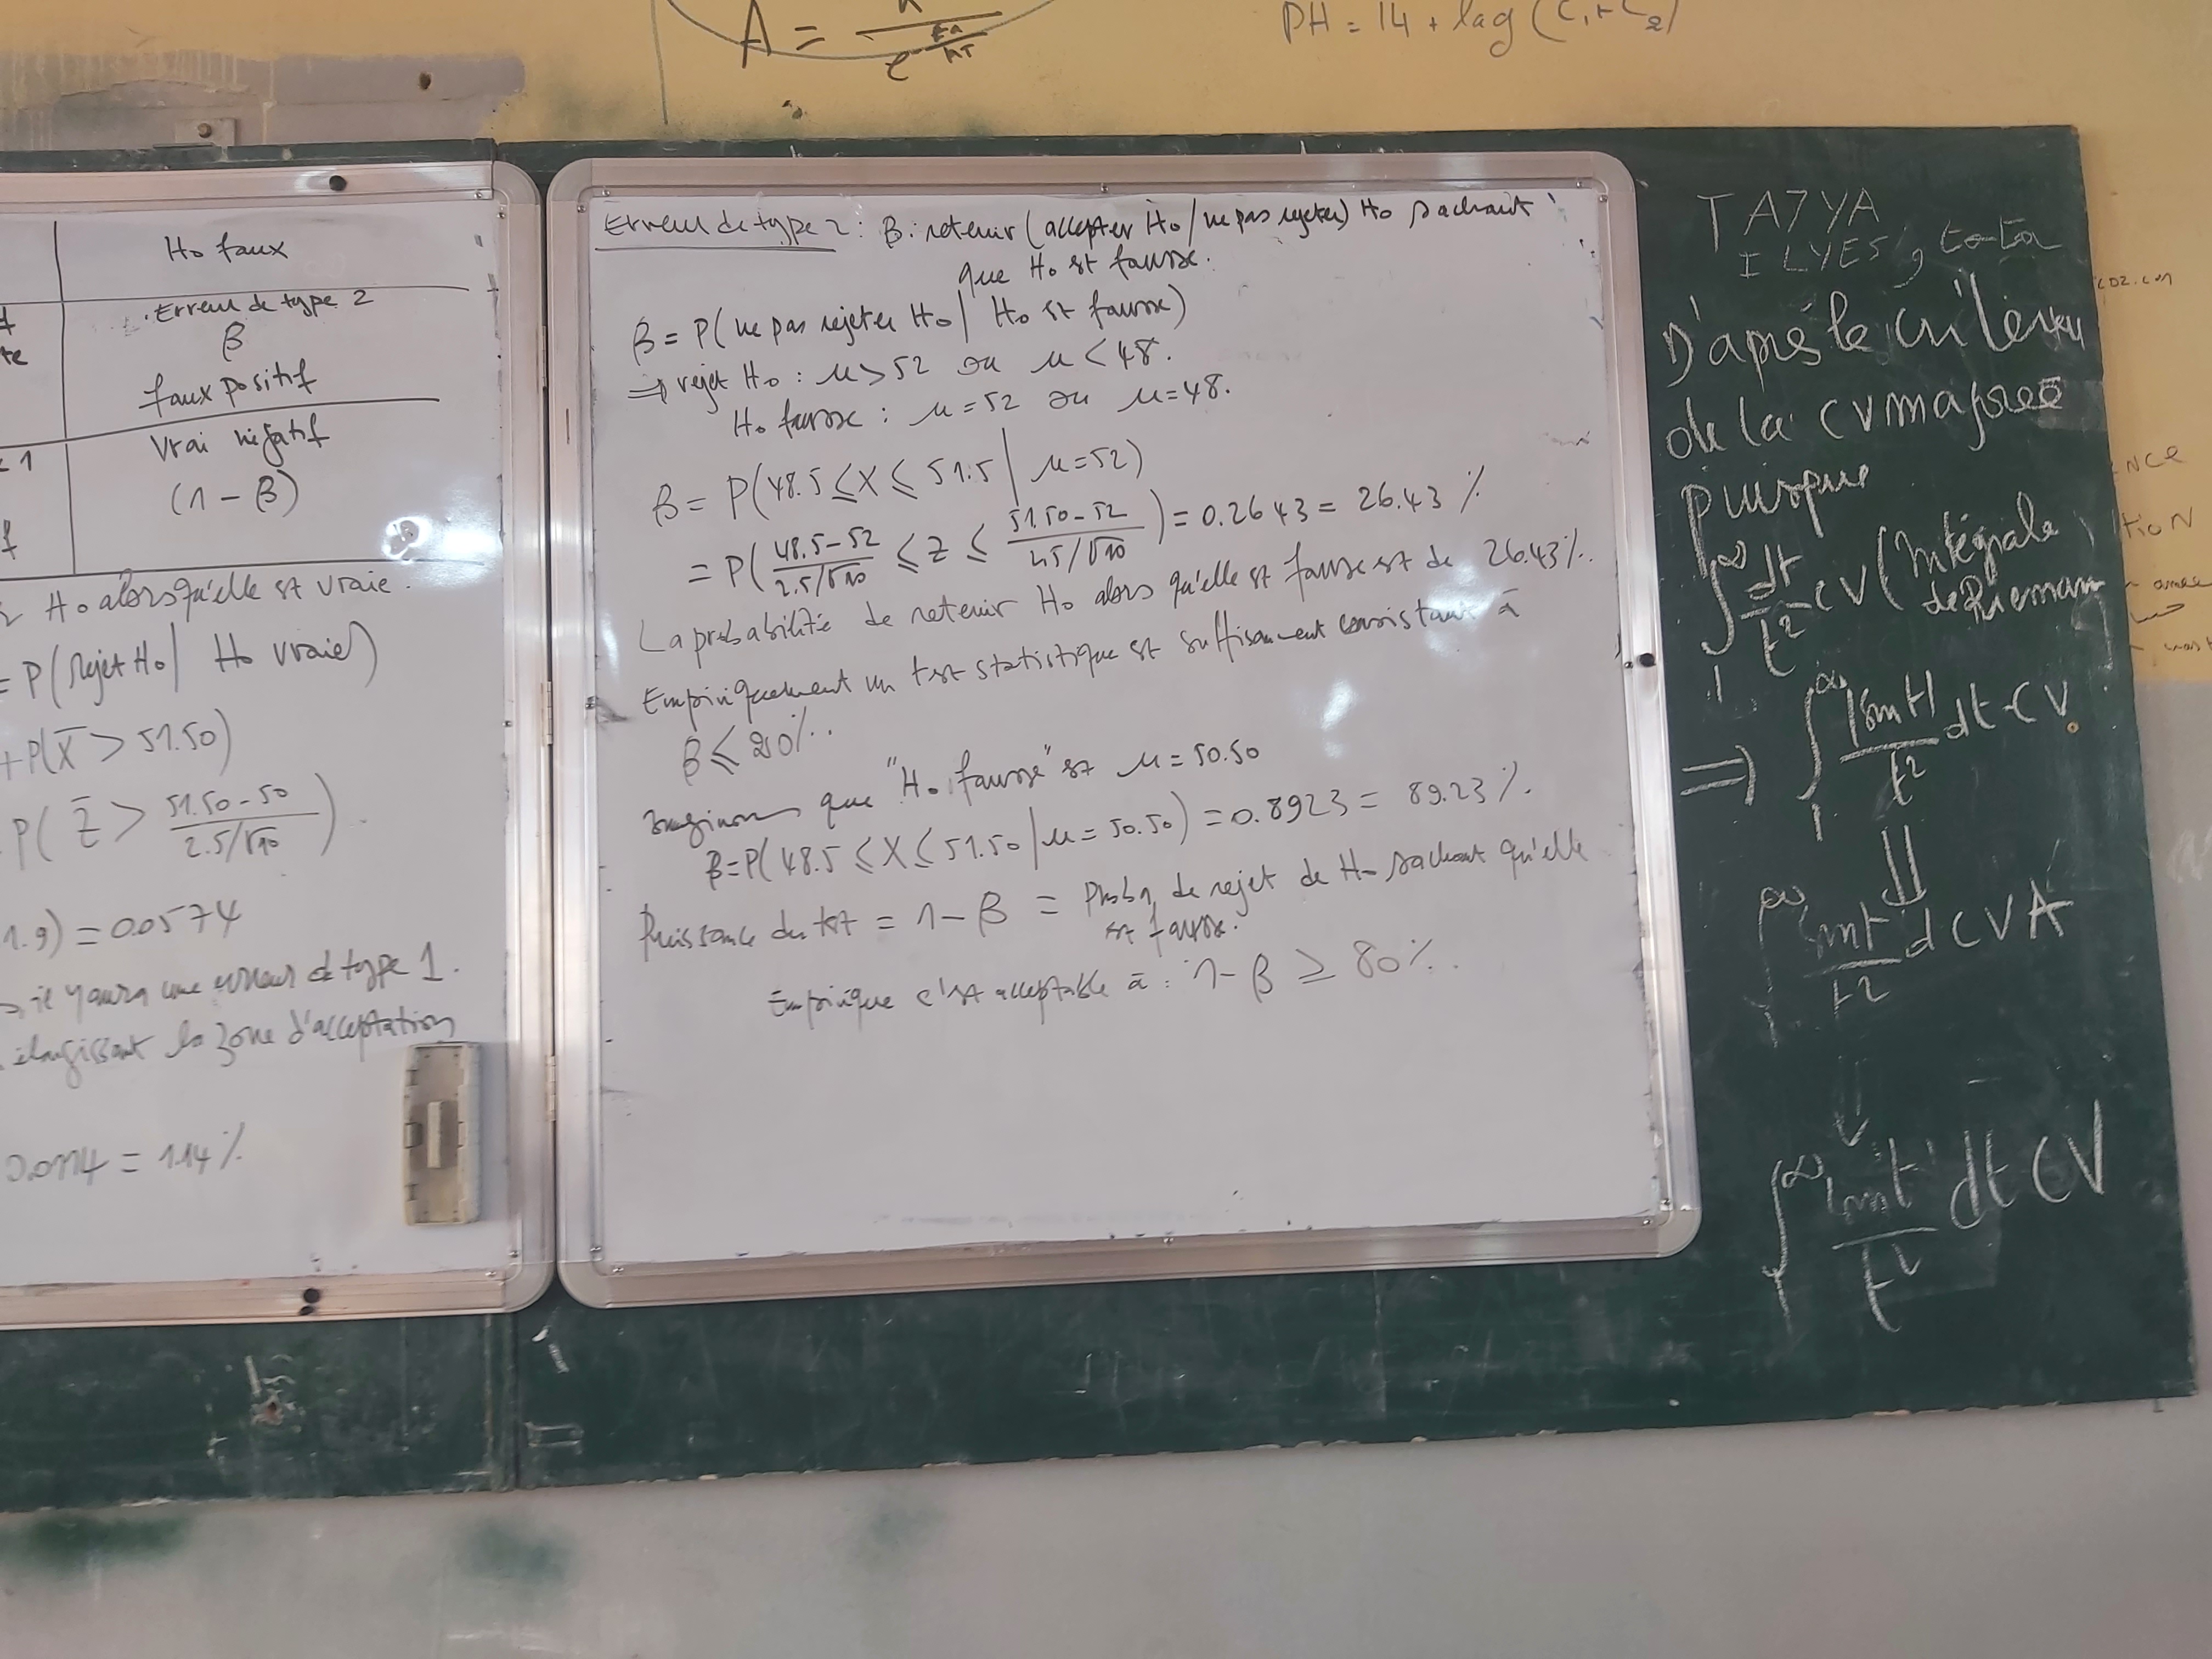 A =
PH = 14 + log (C1 + C2)
H0 faux
Erreur de type 2
β
faux positif
Vrai négatif
(1 - β)
H0 alors qu'elle est vraie.
= P(Rejet H0 | H0 vraie)
+ P(X̄ > 51.50)
P( Z̄ > (51.50-50)/(2.5/√10) )
1.9) = 0.0574
il y aura une erreur de type 1.
élargissant la zone d'acceptation
0.0114 = 1.14 %
Erreur de type 2 : β: retenir (accepter H0 / ne pas rejeter) H0 sachant
que H0 est fausse.
β = P(ne pas rejeter H0 | H0 est fausse)
⇒ rejet H0 : μ > 52 ou μ < 48.
H0 fausse : μ = 52 ou μ = 48.
β = P(48.5 ≤ X ≤ 51.5 | μ = 52)
= P( (48.5-52)/(2.5/√10) ≤ Z ≤ (51.50-52)/(2.5/√10) ) = 0.2643 = 26.43 %
La probabilité de retenir H0 alors qu'elle est fausse est de 26.43 %.
Empiriquement un test statistique est suffisamment consistant à
β ≤ 20 %.
Imaginons que "H0 fausse" est μ = 50.50
β = P(48.5 ≤ X ≤ 51.50 | μ = 50.50) = 0.8923 = 89.23 %.
Puissance du test = 1 - β = Prob, de rejet de H0 sachant qu'elle
est fausse.
Empirique c'est acceptable à : 1 - β ≥ 80 %.
TA7YA
ILYES,
D'après le critère
de la CV majorée
puisque
∫₁^∞ dt/t² CV (Intégrale
de Riemann
⇒ ∫₁^∞ |sin t|/t² dt CV
⇓
∫₁^∞ sin t/t² d CVA
↓
∫₁^∞ sin t/t² dt CV